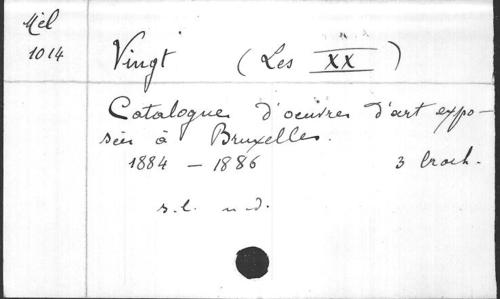 Mél
1014
Vingt (Les XX)
Catalogues d'oeuvres d'art expo-
sées à Bruxelles.
1884 - 1886 3 broch.
s.l. n.d.